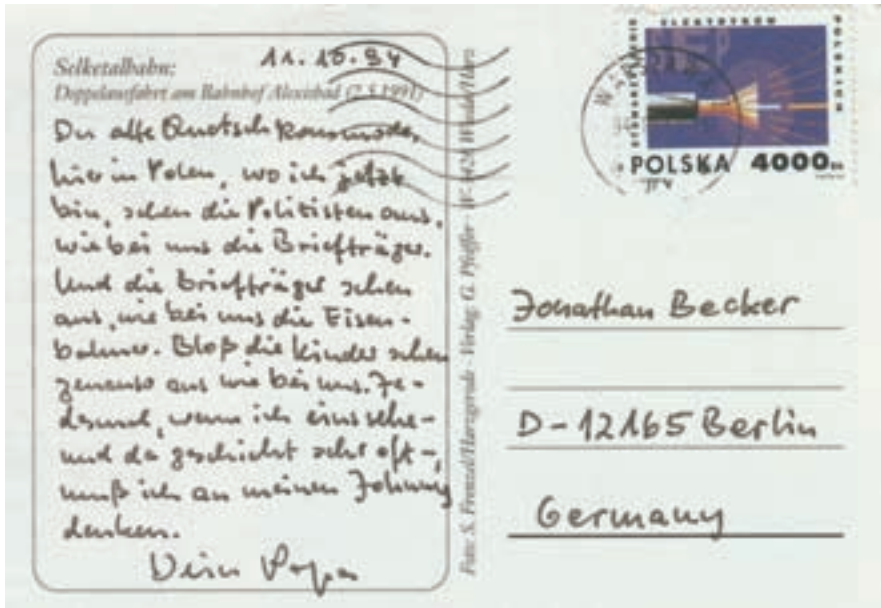 11.10.94
Selketalbahn:
Doppelausfahrt am Bahnhof Alexisbad (2.5.1991)
Du alte Quetschkommode,
hier in Polen, wo ich jetzt
bin, sehen die Polizisten aus,
wie bei uns die Briefträger.
Und die Briefträger sehen
aus, wie bei uns die Eisen-
bahner. Bloß die Kinder sehen
genauso aus wie bei uns. Je-
desmal, wenn ich eins sehe –
und da geschieht sehr oft –,
muß ich an meinen Johnny
denken.
Dein Papa
Foto: S. Frenzel/Harzgerode · Verlag G. Pfeiffer
ELEKTRYKÓW
POLSKA 4000
Jonathan Becker
D-12165 Berlin
Germany